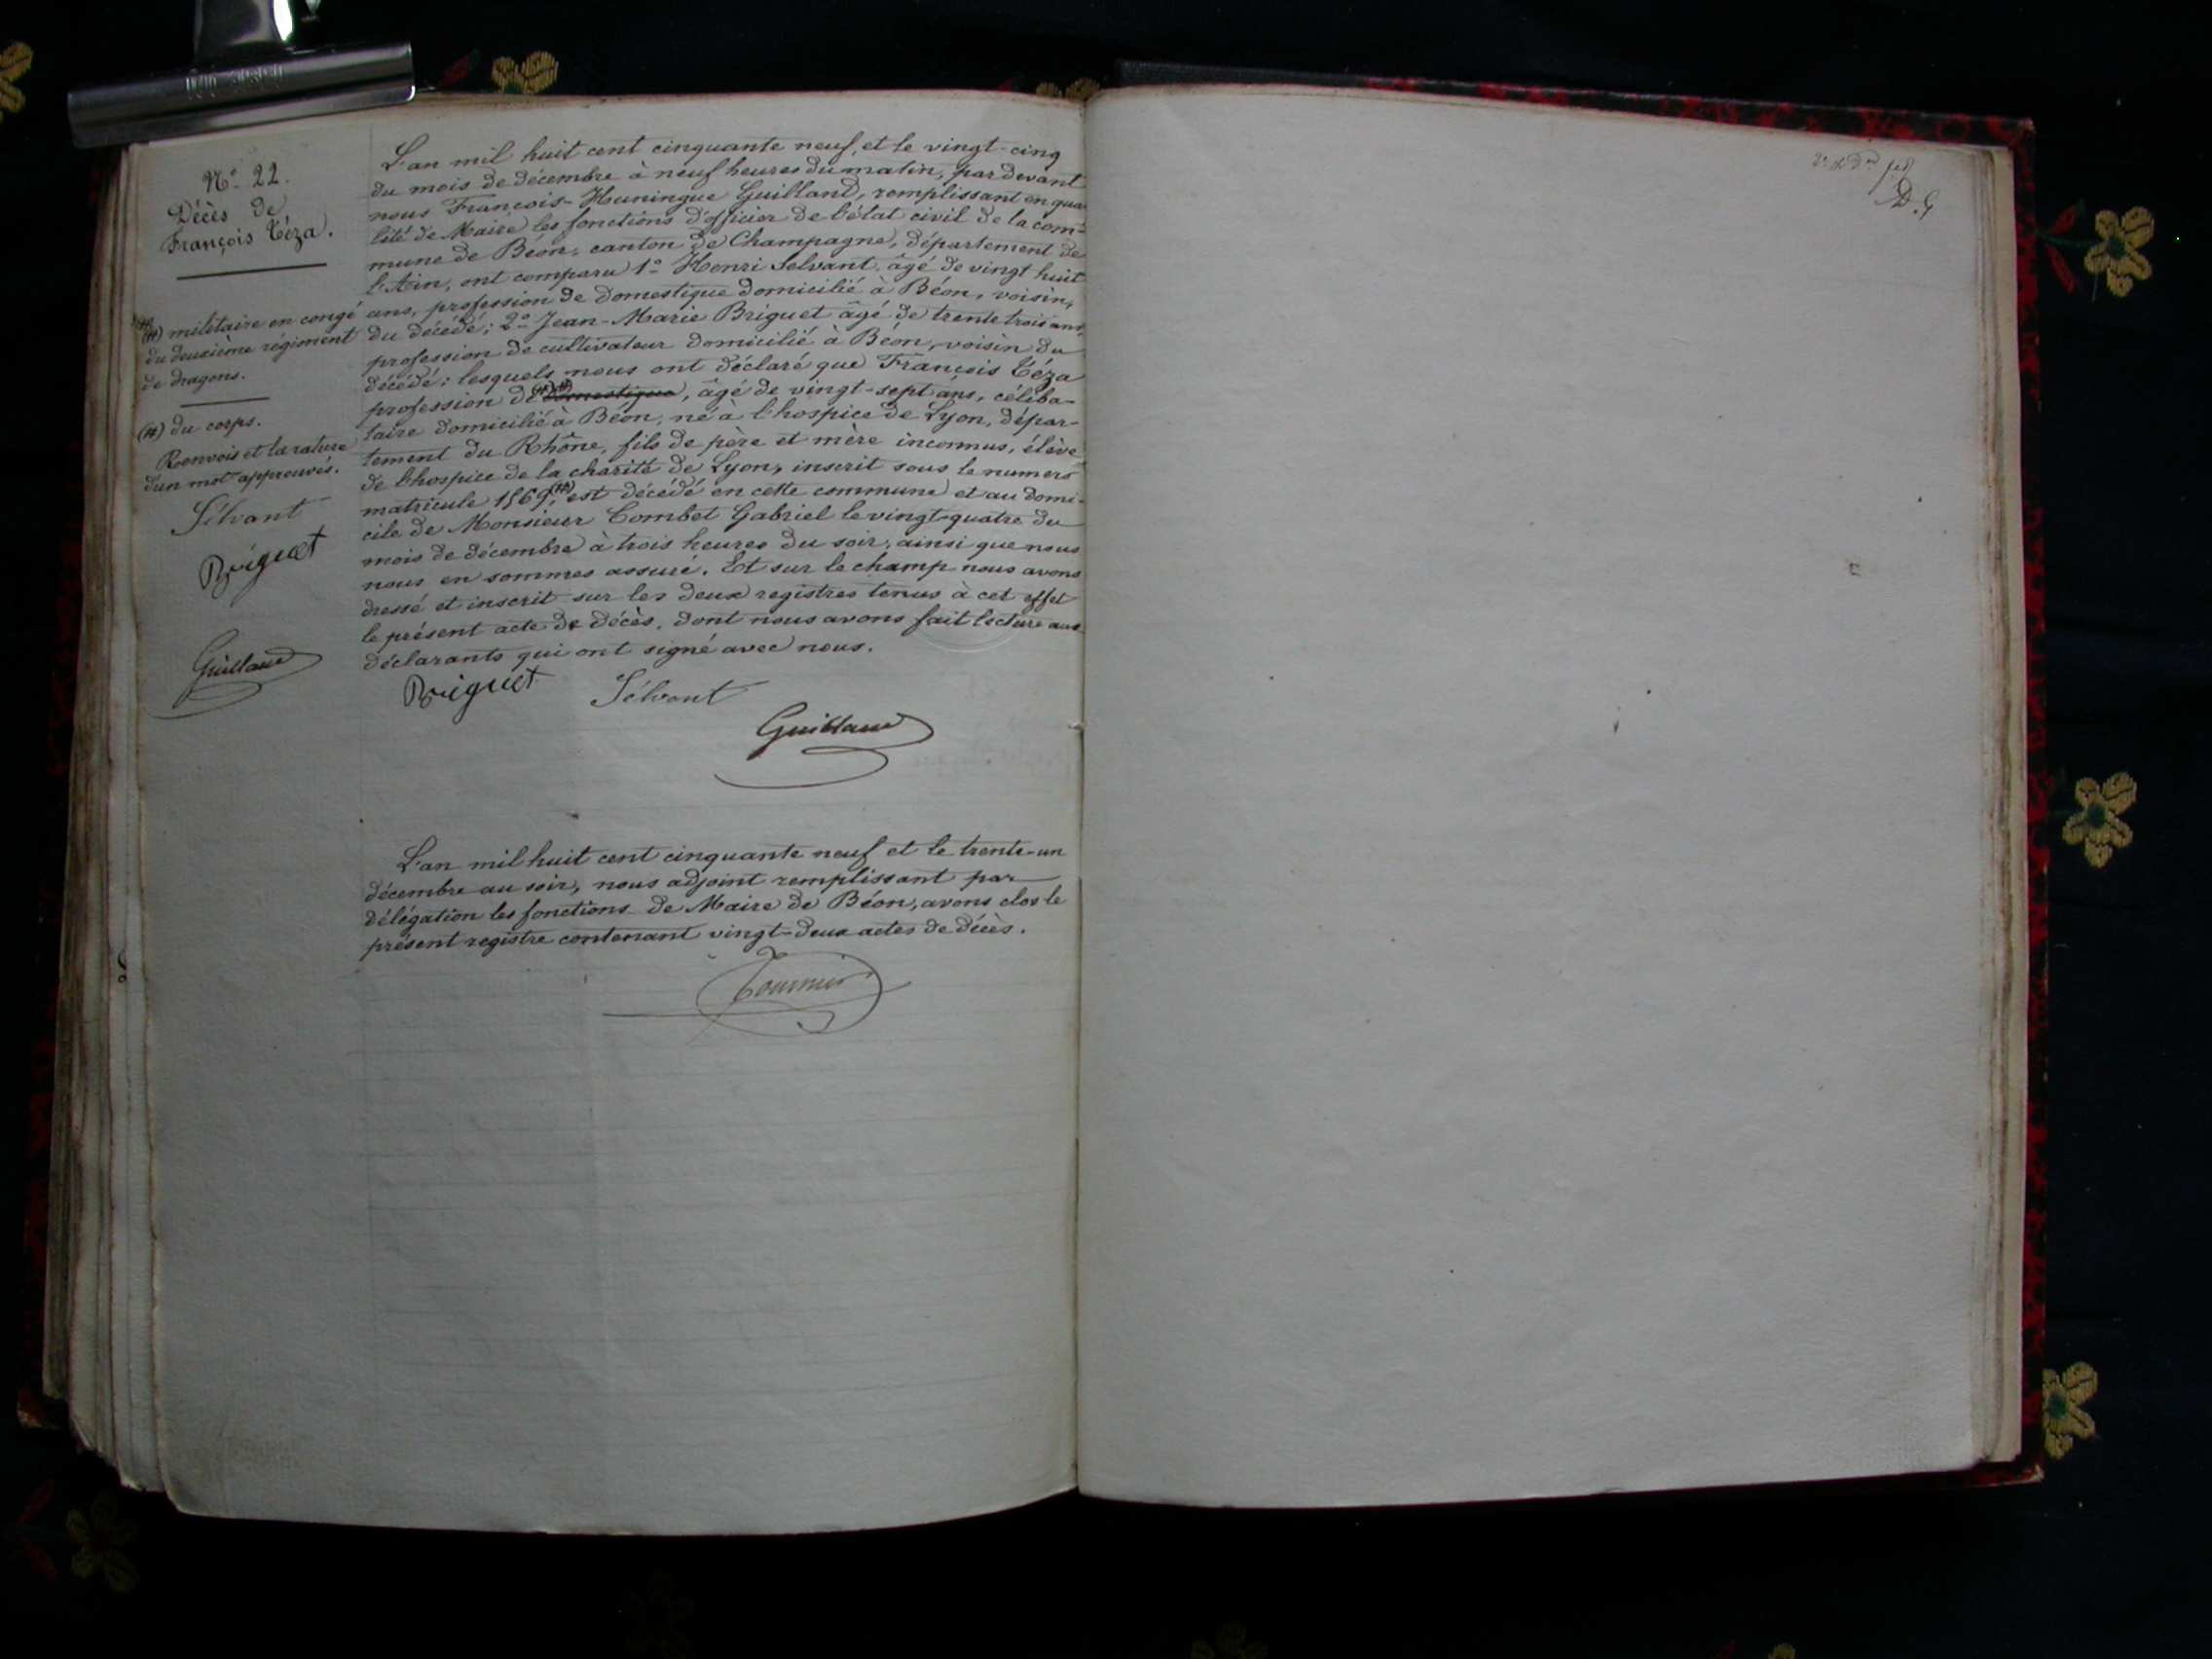 N° 22.
Décès de
François Téza.
(#) militaire en congé
du deuxième régiment
de dragons.
(#) du corps.
Renvois et la rature
d'un mot approuvés.
Sélvant
Briguet
Guilland
L'an mil huit cent cinquante neuf, et le vingt-cinq
du mois de décembre à neuf heures du matin, par devant
nous François-Huningue Guilland, remplissant en qua-
lité de Maire les fonctions d'officier de l'état civil de la com-
mune de Béon, canton de Champagne, département de
l'Ain, ont comparu 1° Henri Selvant, âgé de vingt huit
ans, profession de domestique domicilié à Béon, voisin,
du décédé; 2° Jean-Marie Briguet âgé de trente trois ans,
profession de cultivateur domicilié à Béon, voisin du
décédé: lesquels nous ont déclaré que François Téza
profession de domestique (#), âgé de vingt-sept ans, céliba-
taire domicilié à Béon, né à l'hospice de Lyon, dépar-
tement du Rhône, fils de père et mère inconnus, élève
de l'hospice de la charité de Lyon, inscrit sous le numero
matricule 1569, (#) est décédé en cette commune et au domi-
cile de Monsieur Combet Gabriel le vingt-quatre du
mois de décembre à trois heures du soir, ainsi que nous
nous en sommes assuré. Et sur le champ nous avons
dressé et inscrit sur les deux registres tenus à cet effet
le présent acte de décès, dont nous avons fait lecture aux
déclarants qui ont signé avec nous.
Briguet Sélvant
Guilland
L'an mil huit cent cinquante neuf et le trente-un
décembre au soir, nous adjoint remplissant par
délégation les fonctions de Maire de Béon, avons clos le
présent registre contenant vingt-deux actes de décès.
D. G